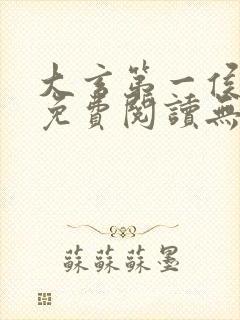 大玄第一侯
免費閱讀無
蘇蘇蘇墨